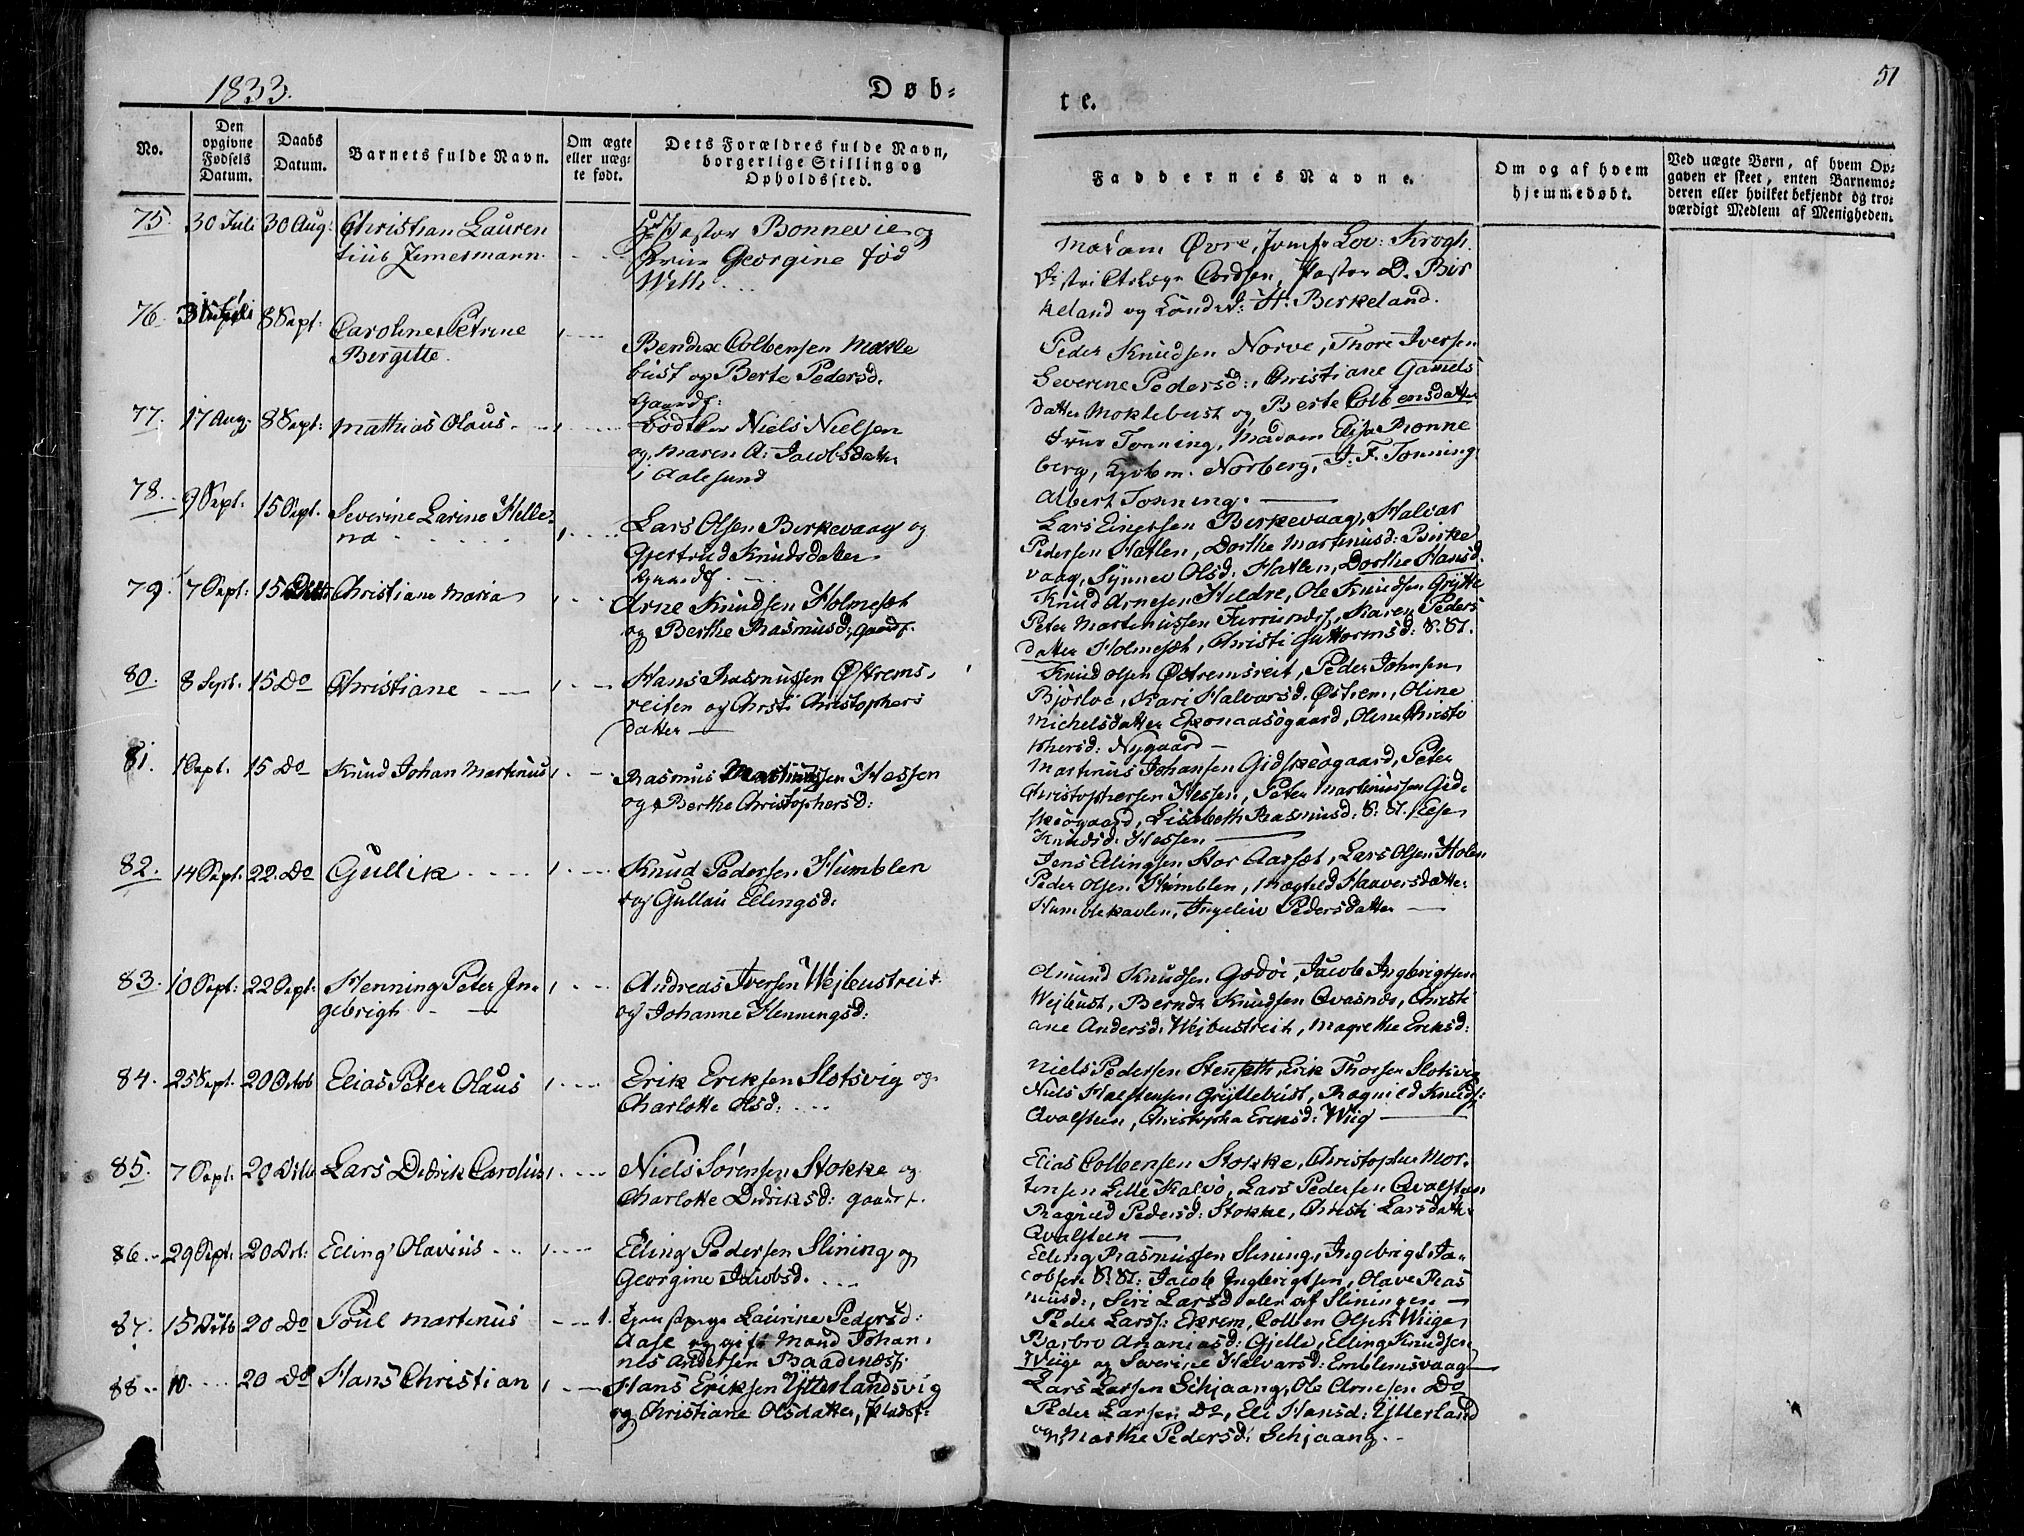 1833.
Døb-
te.
51
No.
Den opgivne Fødsels Datum.
Daabs Datum.
Barnets fulde Navn.
Om ægte eller uæg-te født.
Dets Forældres fulde Navn, borgerlige Stilling og Opholdssted.
Faddernes Navne.
Om og af hvem hjemmedøbt.
Ved uægte Børn, af hvem Op-
gaven er skeet, enten Barnemo-
deren eller hvilket bekjendt og tro-
værdigt Medlem af Menigheden.
75. 30 Juli 30 Aug: Christian Lauren
tius Zimesmann.
Pastor Bonnevie og
Georgine fød
Madam Øvre, Krogh.
Pastor D. Bir
keland og H. Birkeland.
76. 8 Sept: Caroline Petrine
Bergitte.
Bendix Colbensen Mokle
bust og Berte Pedersd.
Gaardf:
Peder Knudsen Norve, Thore Iversen
Severine Pedersd:, Christiane Gamels
datter Moklebust og Berte Colbensdatter
77. 17 Aug. 8 Sept: Mathias Olaus
Niels Nielsen
og Maren A: Jacobsdatter
i Aalesund
Tonning, Madam Elisa Rønne
berg, Norberg, J. F. Tonning,
Albert Tonning.
78. 9 Sept. 15 Sept. Severine Larine Helle-
na
Lars Olsen Birkevaag og
Gjertrud Knudsdatter
Gaardf.
Lars Einersen Birkevaag, Halvar
Pedersen Hatlen, Dorthe Martinusd: Birke
vaag, Synnev Olsd: Hatlen, Dorthe Hansd.
79. 7 Sept: 15 Christiane Maria
Arne Knudsen Holmesæt
og Berthe Rasmusd: Gaardf.
Knud Arnesen Hildre, Ole Knudsen Grytte
Peter Martinussen, Karen Peders
datter Holmesæt, Christi Guttormsd: S. St.
80. 8 Sept. 15 Do Christiane
Hans Rasmussen Østrems
reiten og Chrsti Christophers
datter
Knud Olsen Østremsreit, Peder Johnsen
Kari Halvarsd. Østrem, Oline
Michelsdatter, Oline Christo
phersd: Nygaard
81. 1 Sept. 15 Do Knud Johan Martinus
Rasmus Martinussen Hessen
og Berthe Christophersd:
Martinus Johansen Gidskeøgaard, Peter
Christophersen Hessen, Peter Martinussen Gid-
skeøgaard, Lisabeth Rasmusd: S: St.
Knudsd: Hessen
82. 14 Sept. 22. Do Gullik
Knud Pedersen Humblen
og Gullau Ellingsd:
Jens Ellingsen Stor Aarsæt, Lars Olsen Holen
Peder Olsen Humblen, Magtild Haaversdatter
Pedersdatter
83. 10 Sept: 22 Sept: Henning Peter In-
gebrigh
Andreas Iversen Wejbustreit
og Johanne Henningsd:
Amund Knudsen Godøi, Jacob Ingbrigtsen
Wejbust, Berndt Knudsen Qvasnæs, Christi
ane Andersd: Wejbustreit, Magrethe Eriksd:
84. 25 Sept. 20 Octob Elias Peter Olaus
Erik Eriksen Slotsvig og
Charlotte Olsd:
Niels Pedersen Stenseth, Erik Thorsen Slotsvig
Niels Halstensen Gryttebust, Ragnild Knudsd:
Qvalsteen, Christopha Eriksd: Wiig
85. 7 Sept: 20 Ditto Lars Didrik Carolus
Niels Sørensen Stokke og
Charlotte Didriksd: gaardf.
Elias Colbensen Stokke, Christopher Mor-
tensen Lille Kalvø, Lars Pedersen Qvalsteen
Ragnild Pedersd: Stokke, Christi Larsdatter
Qvalsteen
86. 29 Sept: 20 Oct: Elling Olavius
Elling Pedersen Slining og
Georgine Jacobsd.
Elling Rasmussen Slining, Ingebrigt Ja-
cobsen S: St: Jacob Ingbrigtsen, Olave Ras
musd:, Siri Larsd alle af Sliningen
87. 15 Octb 20 Do Poul Martinus 1.
Laurine Pedersd:
Aase og gift Mand Johan-
nes Andersen Baadnæs:
Peder Larss: Ekrem, Colben Olsen Wiige
Barbro Ananiasd: Gjelle, Elling Knudsen
Wiige og Severine Halvarsd: Emblemsvaag
88. 10 20 Do Hans Christian
Hans Eriksen Ytterlandsvig
og Christiane Olsdatter, Pladsf:
Lars Larsen Schjaang, Ole Arnesen Do
Peder Larsen Do, Eli Hansd: Ytterland
og Marthe Pedersd: Schjaang.